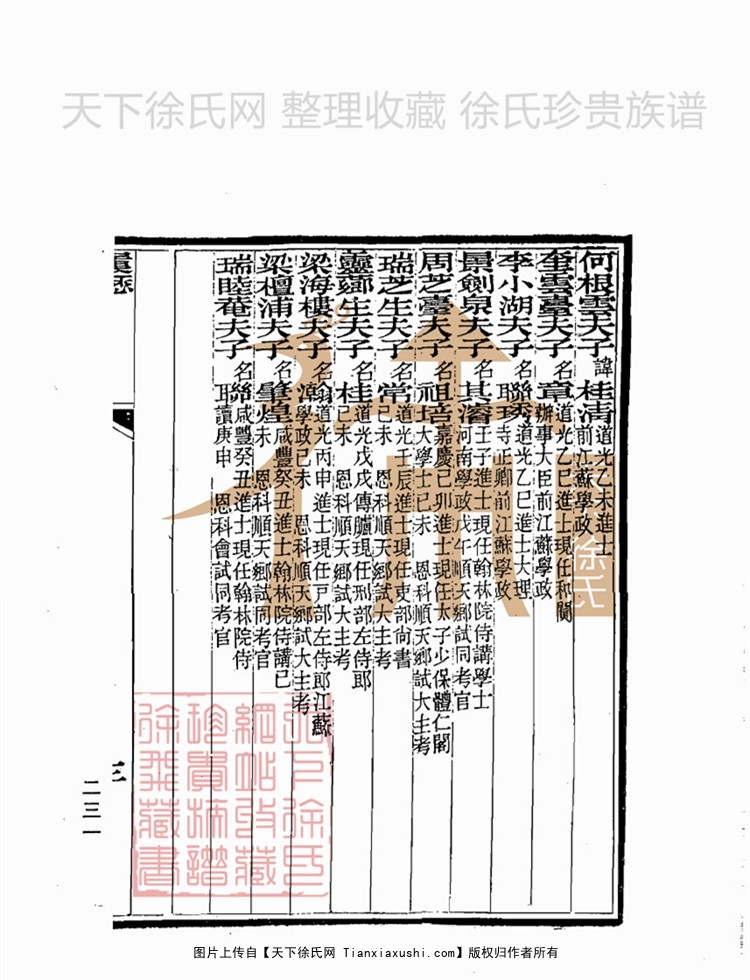 天下徐氏网 整理收藏 徐氏珍贵族谱
何根雲夫子 諱桂清 道光乙未進士
前江蘇學政
奎雲臺夫子 名章 道光乙巳進士現任和闐
辦事大臣前江蘇學政
李小湖夫子 名聯琇 道光乙巳進士大理
寺正卿前江蘇學政
景劍泉夫子 名其濬 壬子進士現任翰林院侍講學士
河南學政戊午順天鄉試同考官
周芝臺夫子 名祖培 嘉慶己卯進士現任太子少保體仁閣
大學士己未 恩科順天鄉試大主考
瑞芝生夫子 名常 道光壬辰進士現任吏部尚書
己未 恩科順天鄉試大主考
靈薌生夫子 名桂 道光戊戌傳臚現任刑部左侍郎
己未 恩科順天鄉試大主考
梁海樓夫子 名瀚 道光丙申進士現任戸部左侍郎江蘇
學政己未 恩科順天鄉試大主考
梁檀浦夫子 名肇煌 咸豐癸丑進士翰林院侍講己
未 恩科順天鄉試同考官
瑞睦菴夫子 名聯 咸豐癸丑進士現任翰林院侍
讀庚申 恩科會試同考官
三
二三一
徐氏
天下徐氏
網站收藏
珍貴族譜
徐飛藏書
图片上传自【天下徐氏网 Tianxiaxushi.com】版权归作者所有